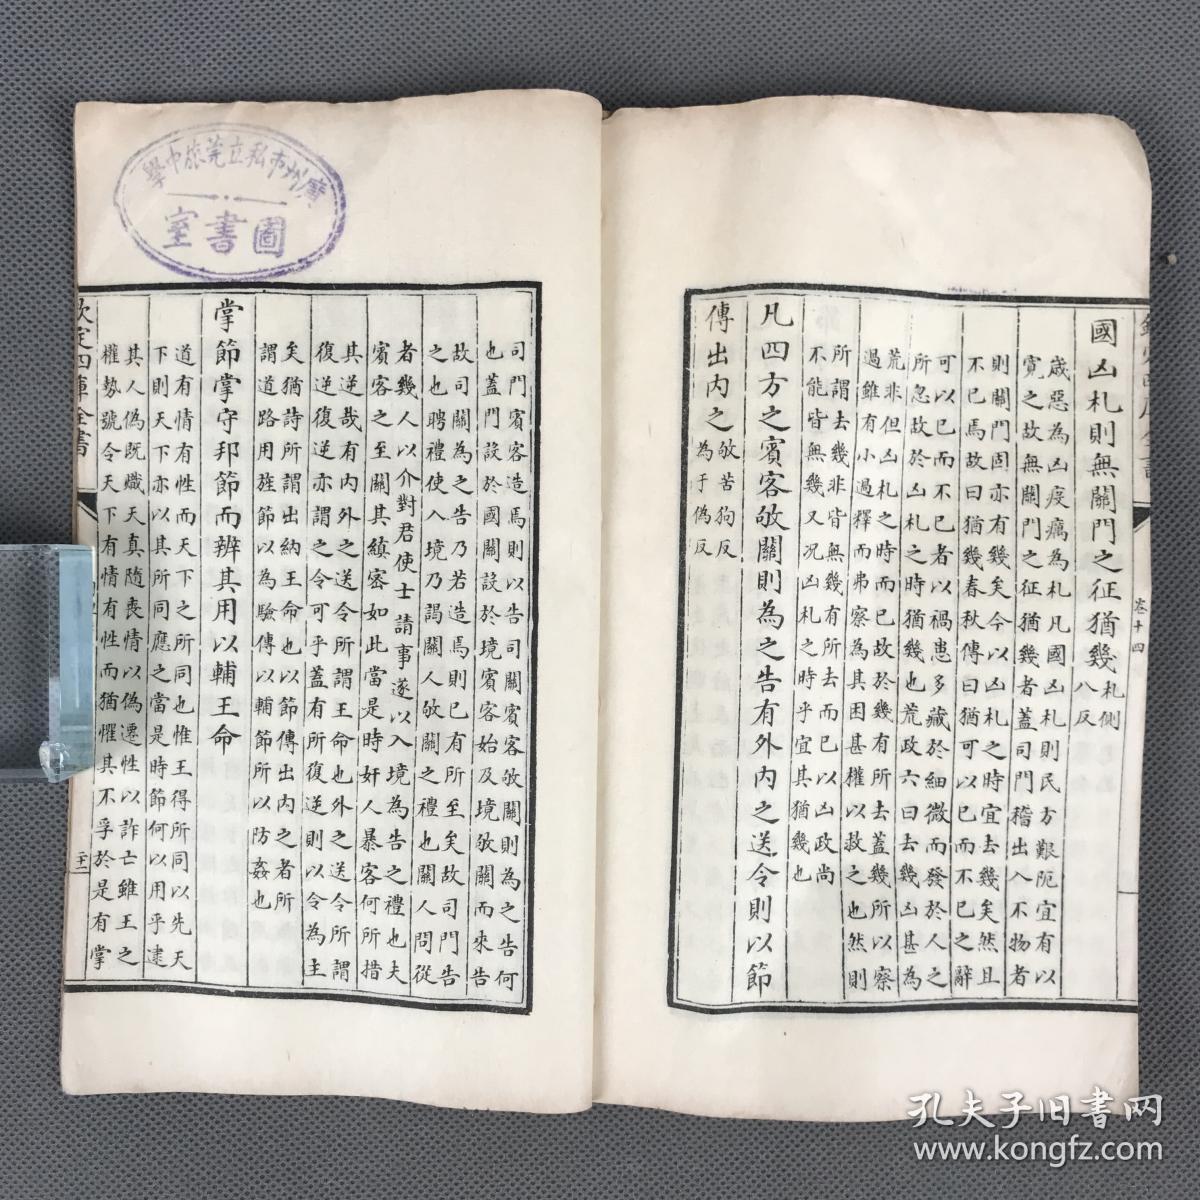 卷十四
國凶札則無關門之征猶幾札側八反
歲惡為凶疫癘為札凡國凶札則民方艱阨宜有以
寛之故無關門之征猶幾者蓋司門稽出入不物者
則關門固亦有幾矣今以凶札之時宜去幾矣然且
不已焉故曰猶幾春秋傳曰猶可以已而不已之辭
可以已而不已者以禍患多藏於細微而發於人之
所忽故於凶札之時猶幾也荒政六曰去幾凶甚為
荒非但凶札之時而已故於幾有所去蓋幾所以察
過雖有小過釋而弗察為其困甚權以救之也然則
所謂去幾非皆無幾有所去而已以凶政尚
不能皆無幾又况凶札之時乎宜其猶幾也
凡四方之賓客敂關則為之告有外内之送令則以節
傳出内之敂苦狗反為于偽反
司門賓客造焉則以告司關賓客敂關則為之告何
也蓋門設於國關設於境賓客始及境敂關而來告
故司關為之告乃若造焉則已有所至矣故司門告
之也聘禮使入境乃謁關人敂關之禮也關人問從
者幾人以介對君使士請事遂以入境為告之禮也夫
賓客之至關其縝宻如此當是時奸人暴客何所措
其逆哉有内外之送令所謂王命也外之送令所謂
復逆復逆亦謂之令可乎蓋有所復逆則以令為主
矣猶詩所謂出納王命也以節傳出内之者所
謂道路用旌節以為驗傳以輔節所以防姦也
掌節掌守邦節而辨其用以輔王命
道有情有性而天下之所同也惟王得所同以先天
下則天下亦以其所同應之當是時節何以用乎逮
其人偽既熾天真隨喪情以偽遷性以詐亡雖王之
權勢號令天下有情有性而猶懼其不孚於是有掌
欽定四庫全書
廣州市私立莞旅中學
圖書室
孔夫子旧书网
www.kongfz.com